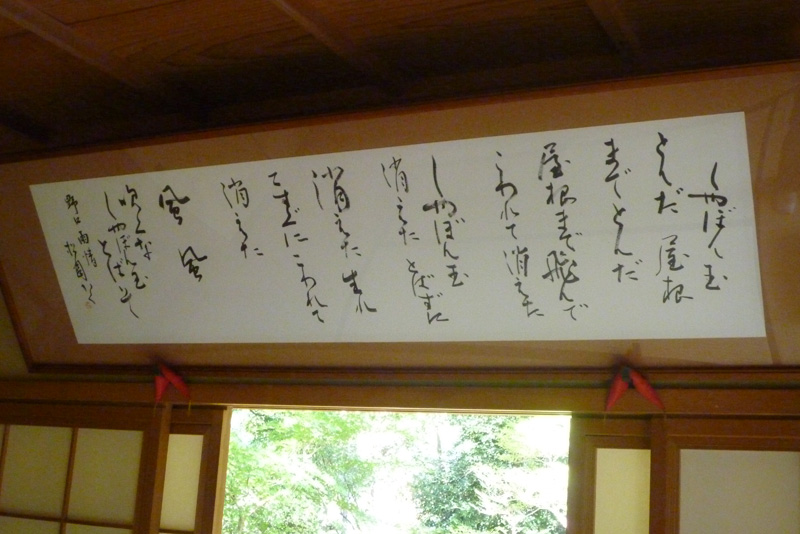 しやぼん玉
とんだ 屋根
までとんだ
屋根まで飛んで
こわれて消えた
しやぼん玉
消えた とばずに
消えた 生れ
てすぐにこわれて
消えた
風 風
吹くな
しやぼん玉
とばそ
野口雨情